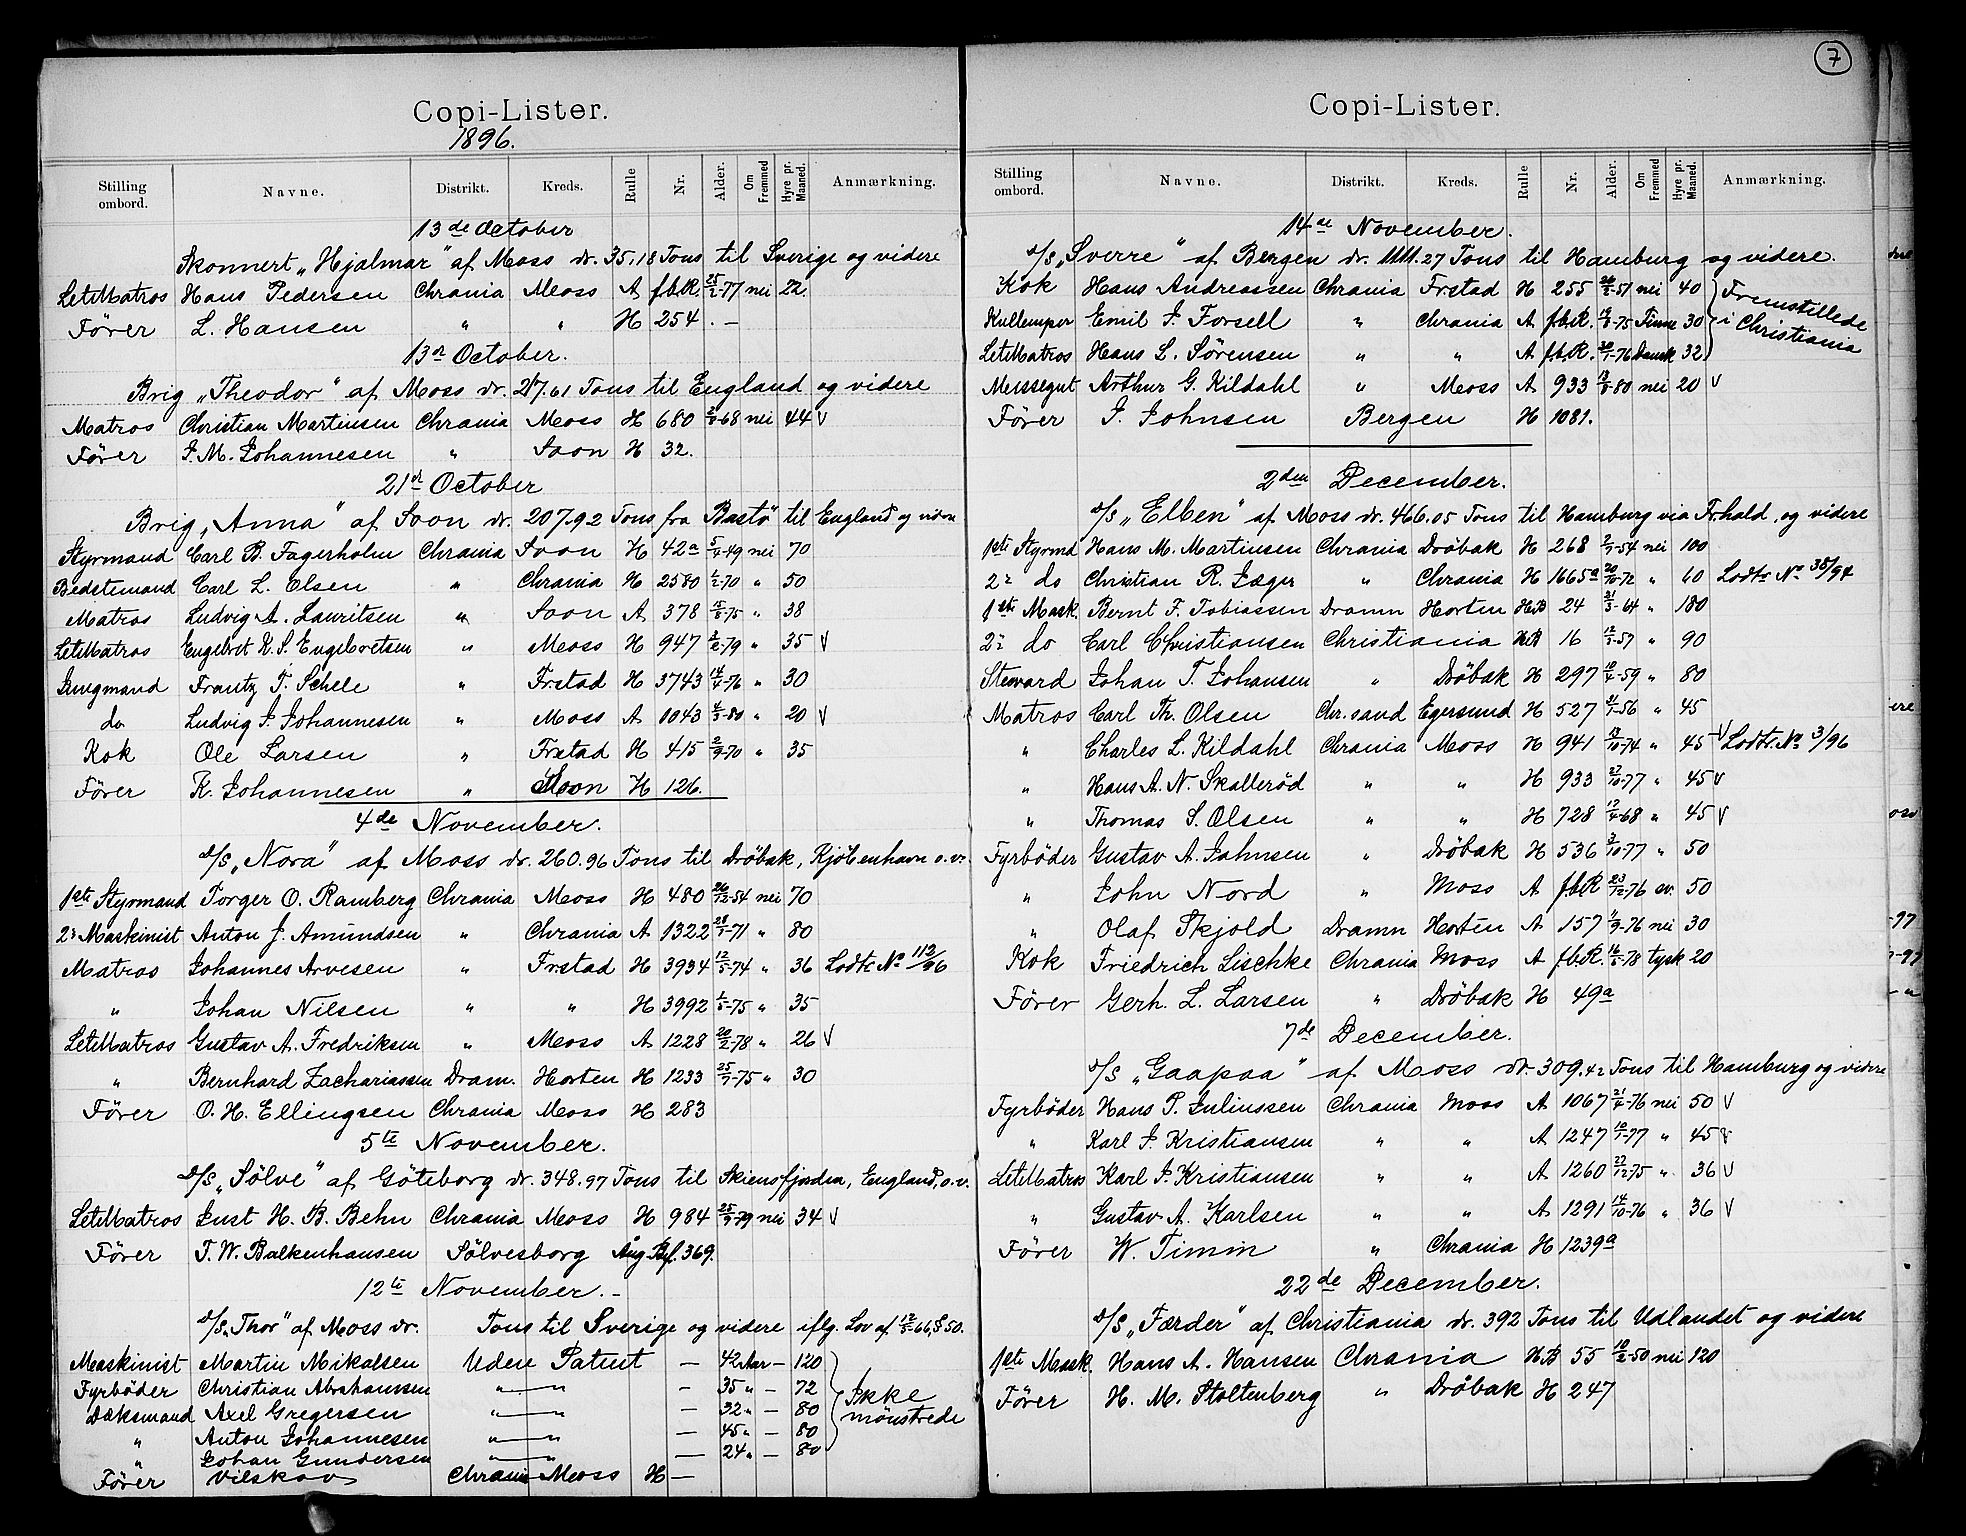 Copi-Lister.
1896.
Stilling ombord. Navne. Distrikt. Kreds. Rulle Nr. Alder. Om Fremmed Hyre pr. Maaned. Anmærkning.
13de October
Skonnert „Hjalmar" af Moss dr. 35,18 Tons til Sverige og videre
LetMatros Hans Pedersen Chrania Moss A f.b.R. 25/2-77 nei 22.
Förer L. Hansen " " H 254. —
13de October.
Brig „Theodor" af Moss dr. 217.61 Tons til England og videre
Matros Christian Martinsen Chrania Moss H 680 -68 nei 44 V
Förer J. M. Johannesen " Soon H 32.
21st October
Brig „Anna" af Soon dr. 207.92 Tons fra Bastö til England og videre
Styrmand Carl B. Fagerholm Chrania Soon H 42a -49 nei 70
Bedstemand Carl L. Olsen " Chrania H 2580 1/2-70 " 50
Matros Ludvig A. Lauritsen " Soon A 378 -75 " 38
LetMatros Engebret K. S. Engebretsen " Moss H 947 2/2-79 " 35 V
Jungmand Frantz T. Schele " Frstad H 3743 14/4-76 " 30
do Ludvig J. Johannesen " Moss A 1043 -80 " 20 V
Kok Ole Larsen " Frstad H 415 2/9-70 " 35
Förer K. Johannesen " Soon H 126.
4de November.
D/S „Nora" af Moss dr. 260.96 Tons til Dröbak, Kjöbenhavn o.v.
1ste Styrmand Torger O. Ramberg Chrania Moss H 480 26/12-54 nei 70
2' Maskinist Anton J. Amundsen " Chrania A 1322 28/1-71 " 80
Matros Johannes Arvesen " Frstad H 3934 12/5-74 " 36 Lodts No 113/96
" Johan Nilsen " " H 3992 1/5-75 " 35
LetMatros Gustav A. Fredriksen " Moss A 1228 20/2-78 " 26 V
" Bernhard Zachariassen Dram. Horten H 1233 25/7-75 " 30
Förer O. H. Ellingsen Chrania Moss H 283
5te November.
D/S „Sölve" af Göteborg dr. 348.97 Tons til Skiensfjorden, England, o.v.
LetMatros Just H. B. Behn Chrania Moss H 984 25/9-79 nei 34 V
Förer T. W. Balkenhausen Sölvesborg Ång.Bf. 369.
12te November. -
D/S „Thor" af Moss dr. Tons til Sverige og videre iflg. Lov af 12/5-66, § 50.
Maskinist Martin Mikalsen Uden Patent — 42 Aar — 120
Fyrböder Christian Abrahamsen " — " — 35 " — 72 Ikke
Dæksmand Axel Gregersen " — " — 32 " — 80 mönstrede
" Anton Johannesen " — " — 45 " — 80
" Johan Gundersen " — " — 24 " — 80
Förer Vilskov Chrania Moss H —
7
Copi-Lister.
Stilling ombord. Navne. Distrikt. Kreds. Rulle Nr. Alder. Om Fremmed Hyre pr. Maaned. Anmærkning.
14de November.
D/S „Sverre" af Bergen dr. 1111.27 Tons til Hamburg og videre.
Kok Hans Andreassen Chrania Frstad H 255 -51 nei 40 Fremstillede
Kullemper Emil J. Forsell " Chrania A f.b.R. -75 Finne 30 i Christiania
LetMatros Hans L. Sörensen " " A f.b.R. -76 Dansk 32
Messegut Arthur G. Kildahl " Moss A 933 -80 nei 20 V
Förer J. Johnsen Bergen H 1081.
2den December.
D/S „Elben" af Moss dr. 466.05 Tons til Hamburg via Fr.hald, og videre
1ste Styrmd Hans M. Martinsen Chrania Dröbak H 268 -54 nei 100
2' do Christian R. Jæger " Chrania H 1665a 20/10-72 " 60 Lodts No 35/94
1ste Mask. Bernt F. Tobiassen Dramn Horten H.B 24 31/3-64 " 180
2' do Carl Christiansen Christiania H.B 16 -57 " 90
Steward Johan T. Johansen " Dröbak H 297 -59 " 80
Matros Carl Th. Olsen Chr.sand Egersund H 527 -56 " 45
" Charles L. Kildahl Chrania Moss H 941 -74 " 45 V Lodts. No 3/96
" Hans A. N. Skalleröd " " H 933 27/10-77 " 45 V
" Thomas S. Olsen " " H 728 -68 " 45 V
Fyrböder Gustav A. Johnsen " Dröbak H 536 3/10-77 " 50
" John Nord " Moss A f.b.R 23/12-76 sv. 50
" Olaf Skjold Dramn Horten A 157 -76 nei 30
Kok Friedrich Lischke Chrania Moss A f.b.R. -78 tysk 20
Förer Gerh. L. Larsen " Dröbak H 49a
7de December.
D/S „Gaapaa" af Moss dr. 309.42 Tons til Hamburg og videre
Fyrböder Hans P. Juliussen Chrania Moss A 1067 21/4-76 nei 50 V
" Karl J. Kristiansen " " A 1247 -77 " 45 V
LetMatros Karl J. Kristiansen " " A 1260 27/12-75 " 36 V
" Gustav A. Karlsen " " A 1291 14/10-76 " 36 V
Förer W. Timm " Chrania H 1239a
22de December.
D/S „Færder" af Christiania dr. 392 Tons til Udlandet og videre
1ste Mask. Hans A. Hansen Chrania H.B 55 -50 nei 120
Förer H. M. Stoltenberg " Dröbak H 247